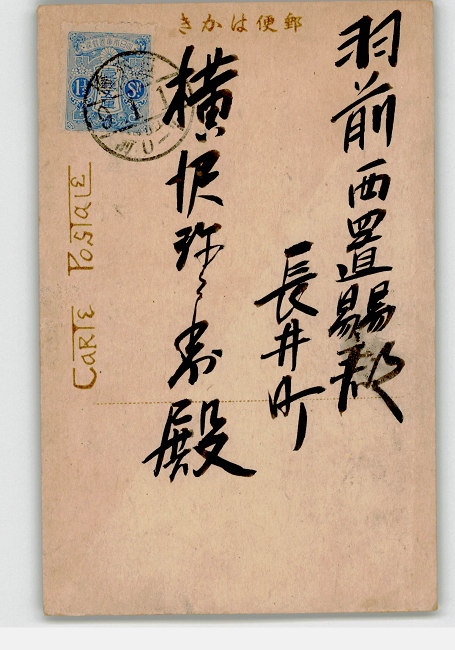 郵便はかき
羽前西置賜郡
長井町
横沢弥々寿殿
CARTE POSTALE
1½ Sn